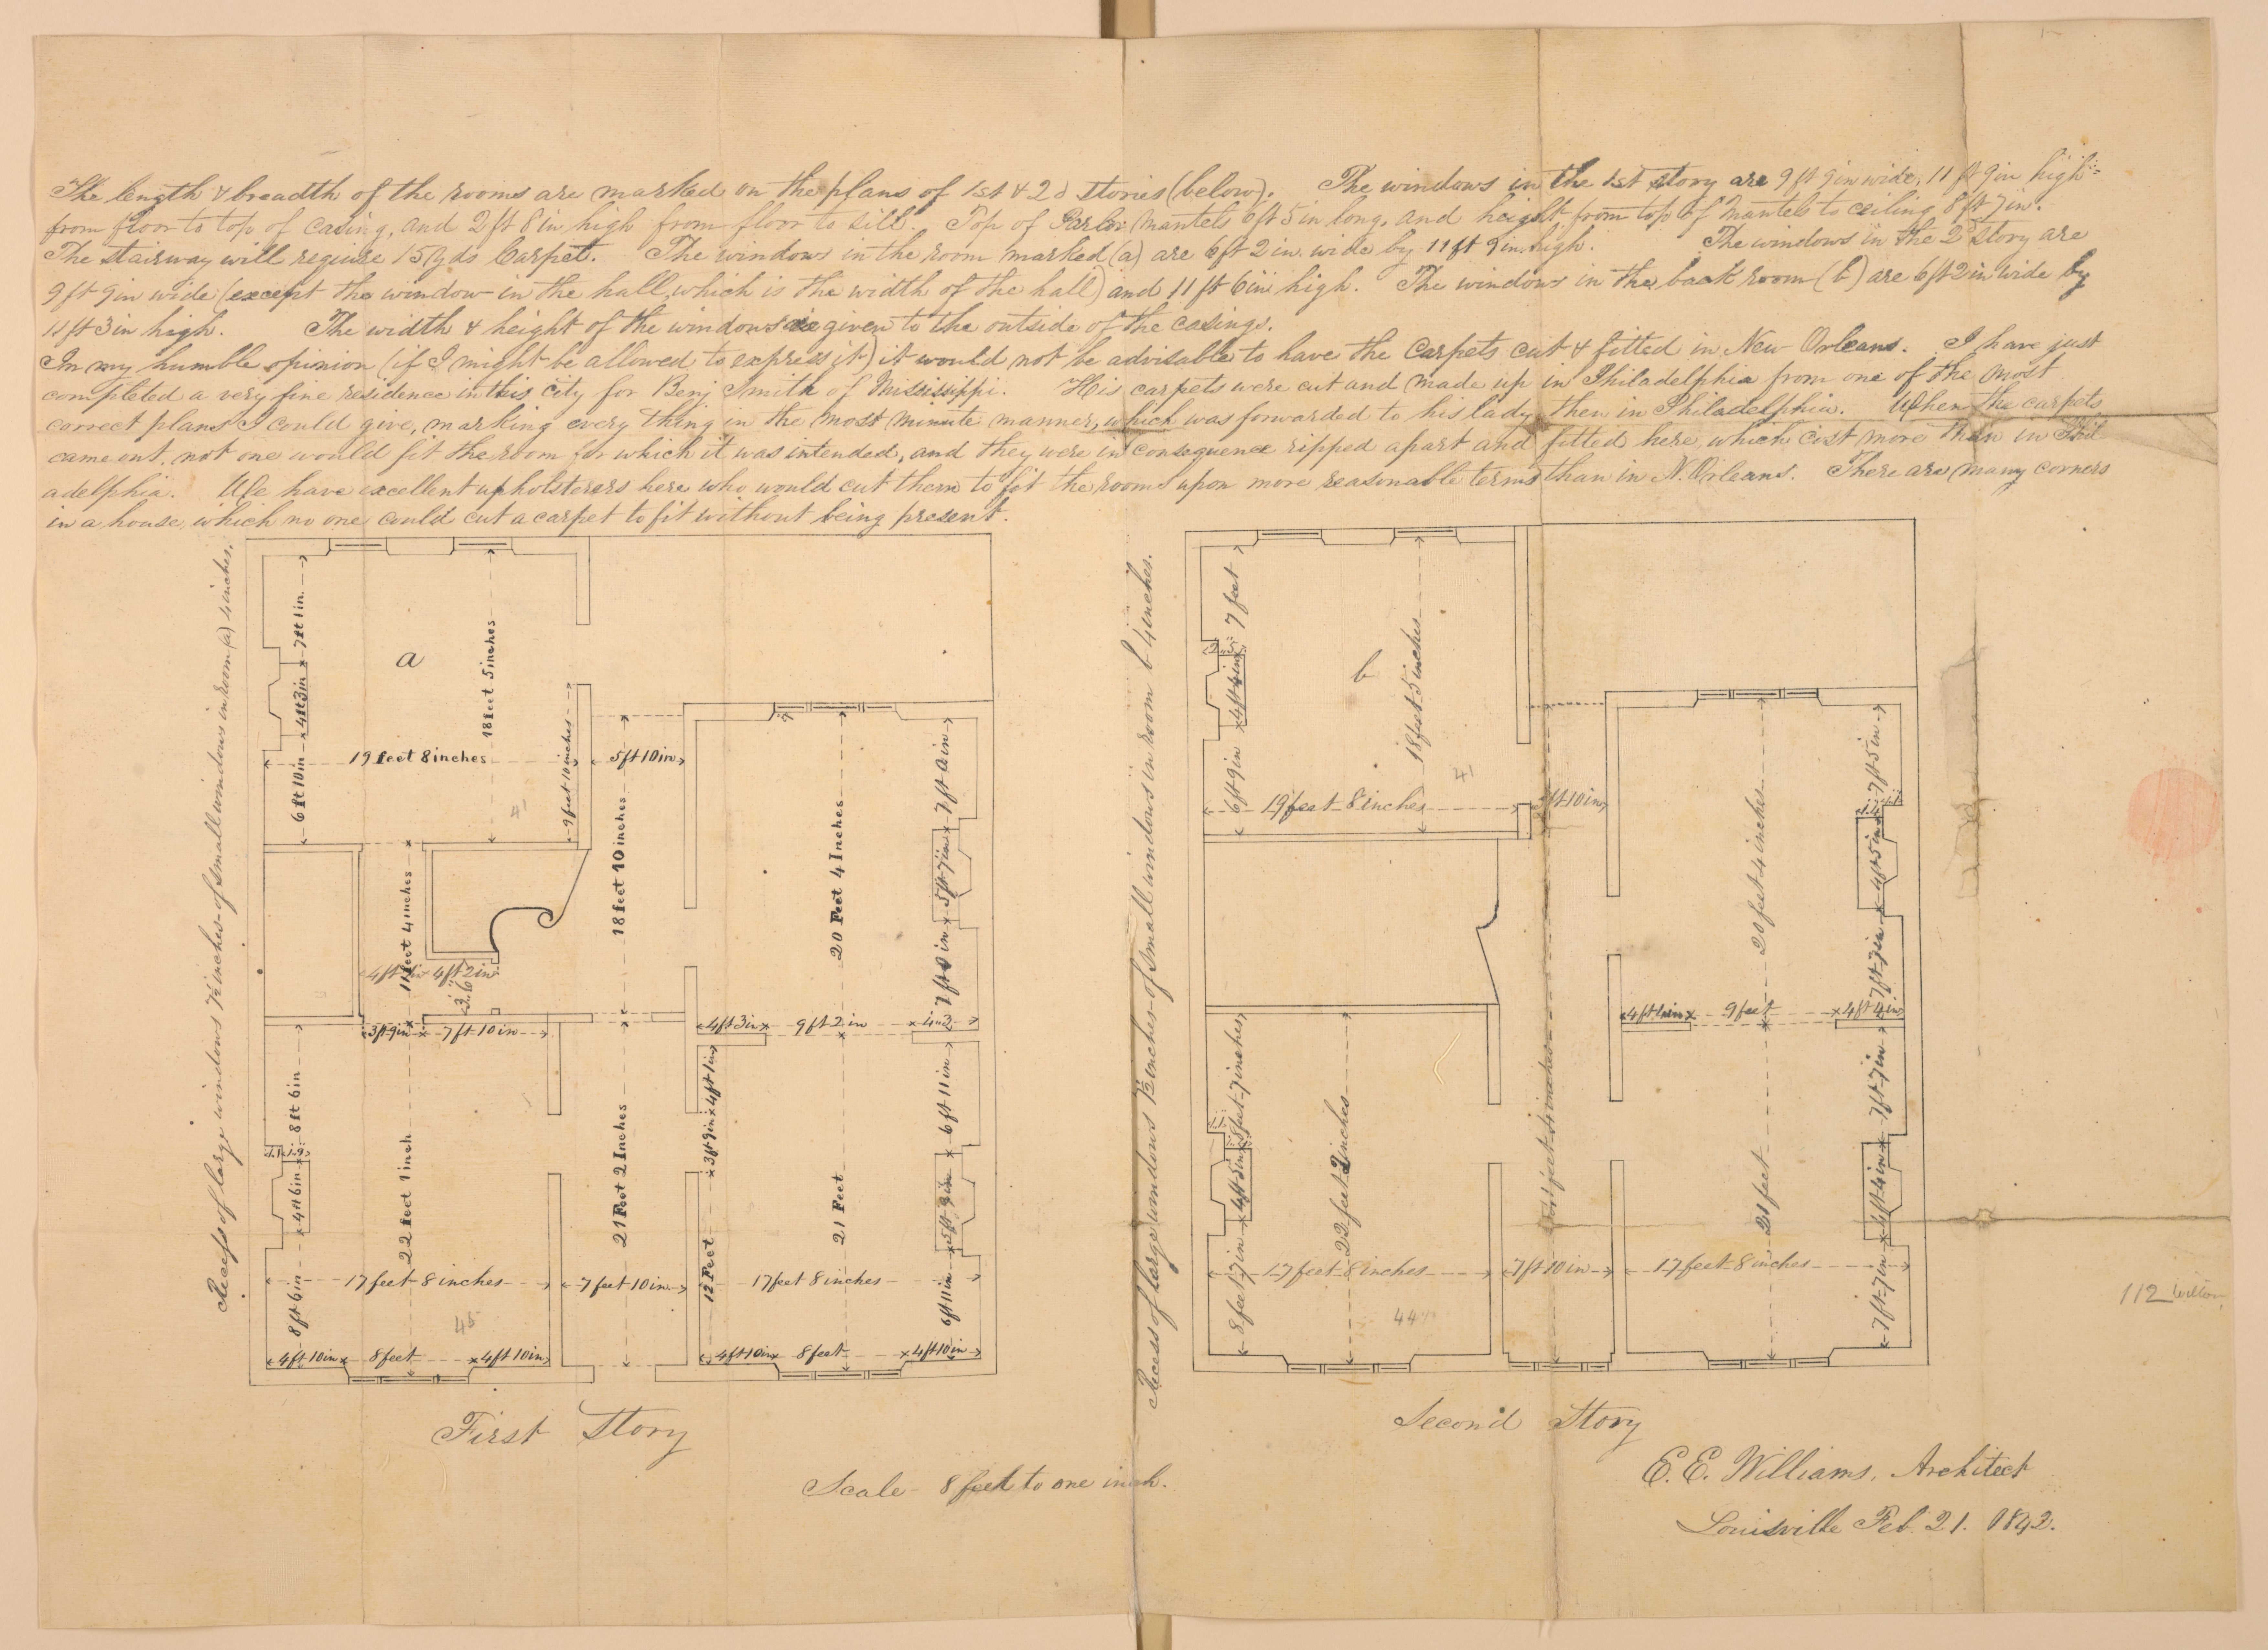 The length & breadth of the rooms are marked on the plans of 1st & 2d stories (below). The windows in the 1st story are 9 ft 9 in wide, 11 ft 9 in high
from floor to top of casing, and 2 ft 8 in high from floor to sill. Top of Parlor Mantels 6 ft 5 in long, and height from top of Mantels to ceiling 8 ft 7 in.
The stairway will require 15 yds Carpet. The windows in the room marked (a) are 6 ft 2 in. wide by 11 ft 9 in. high. The windows in the 2d story are
9 ft 9 in wide (except the window in the hall, which is the width of the hall) and 11 ft 6 in high. The windows in the back room (b) are 6 ft 2 in wide by
11 ft 3 in high. The width & height of the windows is given to the outside of the casings.
In my humble opinion (if I might be allowed to express it) it would not be advisable to have the Carpets cut & fitted in New Orleans. I have just
completed a very fine residence in this city for Benj Smith of Mississippi. His carpets were cut and made up in Philadelphia from one of the most
correct plans I could give, marking every thing in the most minute manner, which was forwarded to his lady, then in Philadelphia. When the carpets
came out, not one would fit the room for which it was intended, and they were in consequence ripped apart and fitted here, which cost more than in Phil-
adelphia. We have excellent upholsterers here who would cut them to fit the rooms upon more reasonable terms than in N. Orleans. There are many corners
in a house, which no one could cut a carpet to fit without being present.
Recess of large windows 7½ inches - of small windows in room (a) 4 inches.
7 ft 1 in.
4 ft 3 in
6 ft 10 in
a
18 feet 5 inches
19 feet 8 inches
9 feet 10 inches
41
5 ft 10 in
18 feet 10 inches
20 Feet 4 Inches
7 ft 0 in
5 ft 7 in
7 ft 0 in
11 feet 4 inches
4 ft 2 in
3.6
3 ft 9 in
7 ft 10 in
4 ft 3 in
9 ft 2 in
4 . 3
8 ft 6 in
4 ft 6 in
8 ft 6 in
22 feet 1 inch
21 Feet 2 Inches
4 ft 1 in
3 ft 9 in
12 Feet
21 Feet
6 ft 11 in
5 ft 9 in
6 ft 11 in
17 feet 8 inches
7 feet 10 in.
17 feet 8 inches
45
4 ft 10 in
8 feet
4 ft 10 in
4 ft 10 in
8 feet
4 ft 10 in
First Story
Scale - 8 feet to one inch.
Recess of large windows 7½ inches - of small windows in room b 4 inches.
7 feet
4 ft 4 in
6 ft 9 in
b
18 feet 5 inches
41
19 feet 8 inches
ft 10 in
20 feet 4 inches
7 ft 5 in
4 ft 5 in
7 ft 7 in
4 ft 4 in
9 feet
4 ft 4 in
8 feet 7 inches
4 ft 5 in
8 feet 7 in
22 feet 2 inches
21 feet
7 ft 7 in
4 ft 4 in
7 ft 7 in
17 feet 8 inches
7 ft 10 in
17 feet 8 inches
44
Second Story
E. E. Williams, Architect
Louisville Feb. 21. 1842.
112